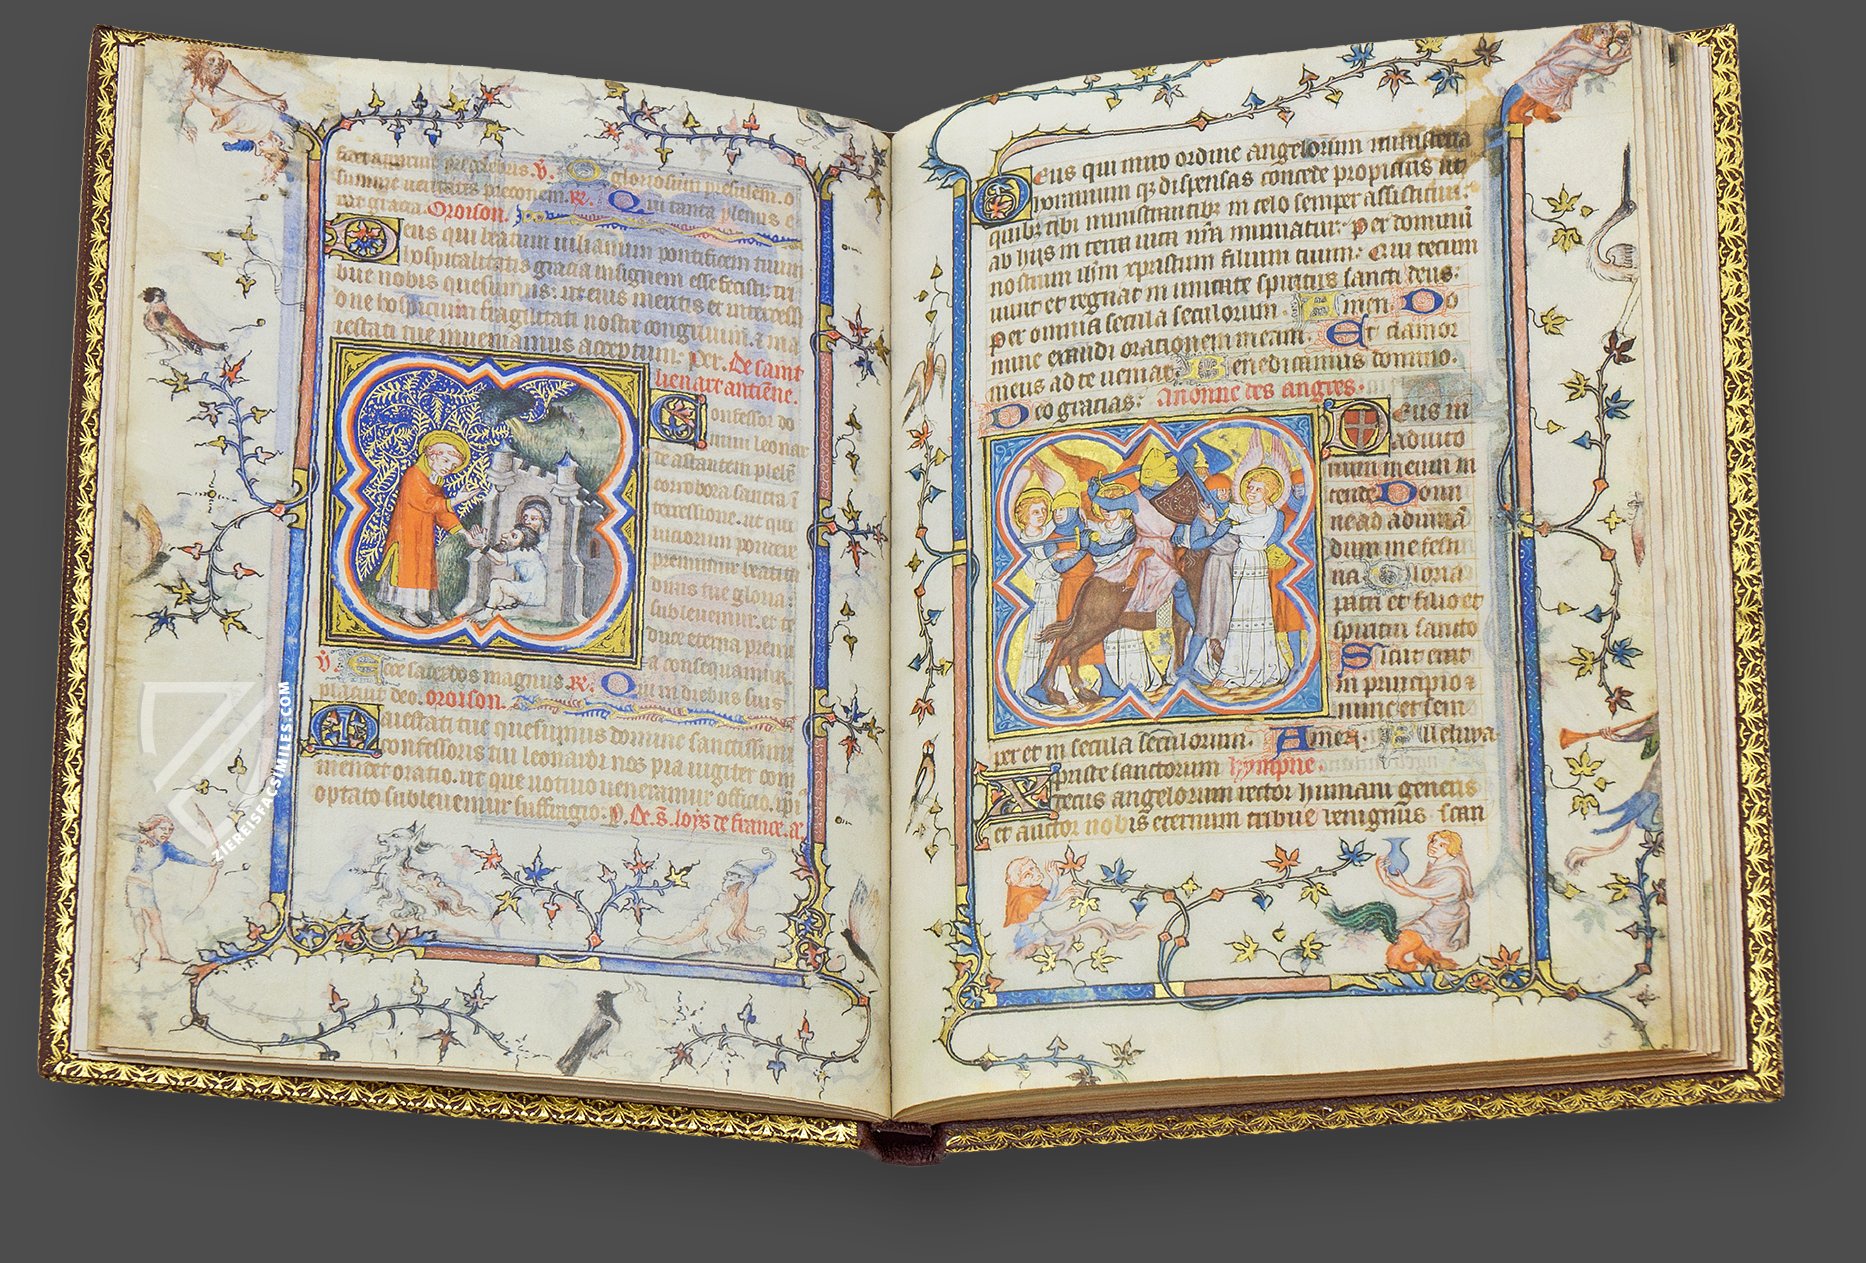 gloriosum presulem. o
summe ueritatis preconem. R. Qui tanta plenus e
rat gracia. Oroison.
Deus qui beatum iulianum pontificem tuum
hospitalitatis gracia insignem esse fecisti: tri
bue nobis quesumus: ut eius meritis et intercessi
one hospicium fragilitati nostre congruum. & ma
iestati tue inueniamus acceptum: per. De saint
lienart antiene.
Confessor do
mini leonar
te astantem plebem
corrobora sancta i
tercessione. ut qui
uiciorum pondere
premimur beatitu
dinis tue gloria
subleuemur. et te
duce eterna premi
a consequamur.
V. Ecce sacerdos magnus. R. Qui in diebus suis
placuit deo. oroison.
Maiestati tue quesumus domine sanctissimi
confessoris tui leonardi nos pia iugiter com
mendet oratio. ut que uotiuo ueneramur officio. ipi
optato subleuemur suffragio. P. De S. loys de france. a
Deus qui miro ordine angelorum ministeria
hominum qz dispensas concede propicius ut
quibz tibi ministrantibz in celo semper assistitur:
ab hiis in terra uita nra muniatur: Per dominum
nostrum ihm xpristum filium tuum: Qui tecum
uiuit et regnat in unitate spiritus sancti deus:
Per omnia secula seculorum. Amen. Do
mine exaudi orationem meam. Et clamor
meus ad te ueniat. Benedicamus domino.
Deo gracias:
Deus in
adiuto
rium meum in
tende Domi
ne ad adiuuan
dum me festi
na Gloria
patri et filio et
spiritui sancto
Sicut erat
in principio &
nunc et sem
per et in secula seculorum. Amen. Alleluya.
hympne
Xpriste sanctorum
decus angelorum rector humani generis
et auctor nobis eternum tribue benignus scan
ZIEREISFACSIMILES.COM